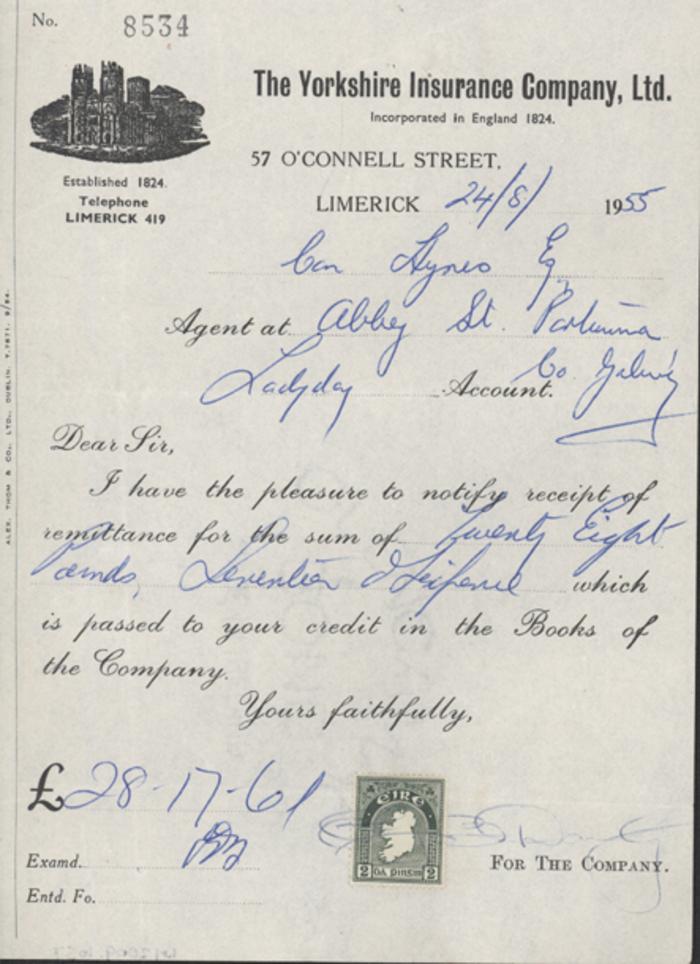 No. 8534
The Yorkshire Insurance Company, Ltd.
Incorporated in England 1824.
Established 1824.
Telephone
LIMERICK 419
57 O'CONNELL STREET,
LIMERICK 24/8/ 1955
Con Hynes Eq.
Agent at Abbey St. Portumna
Ladyday Account. Co. Galway
Dear Sir,
I have the pleasure to notify receipt of
remittance for the sum of Twenty Eight
Pounds, Seventeen & Sixpence which
is passed to your credit in the Books of
the Company.
Yours faithfully,
£28-17-6d
EIRE
2 DA PINSIN 2
Examd.
FOR THE COMPANY.
Entd. Fo.
ALEX. THOM & CO., LTD., DUBLIN. T.7871. 9/54.